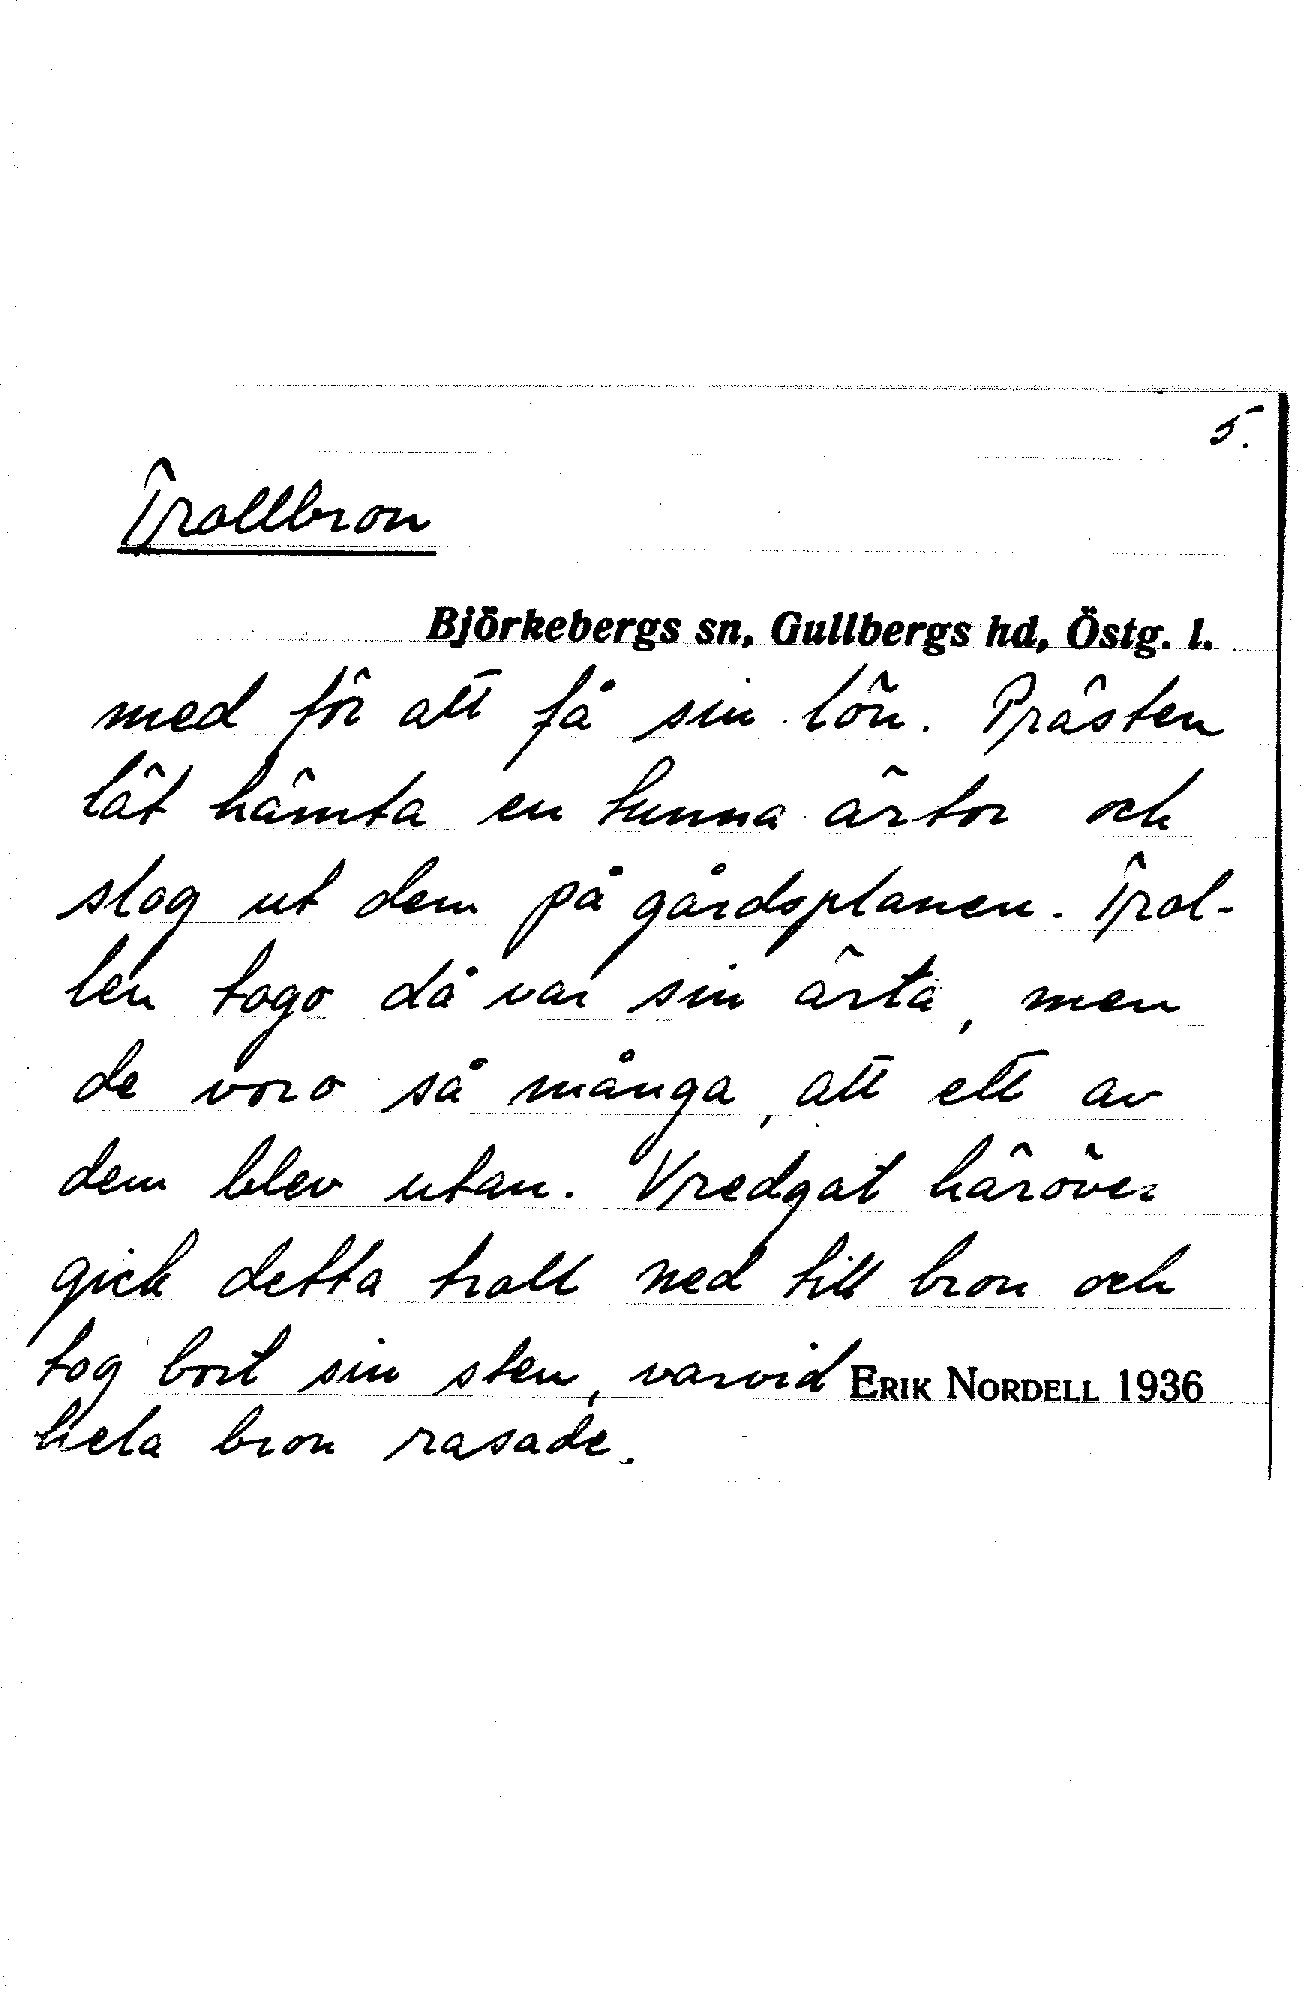 5.
Trollbron
Björkebergs sn, Gullbergs hd, Östg. l.
med för att få sin lön. Prästen
lät hämta en tunna ärtor och
slog ut dem på gårdsplanen. Trol-
len togo då var sin ärta, men
de voro så många, att ett av
dem blev utan. Vredgat häröver
gick detta troll ned till bron och
tog bort sin sten, varvid ERIK NORDELL 1936
hela bron rasade.